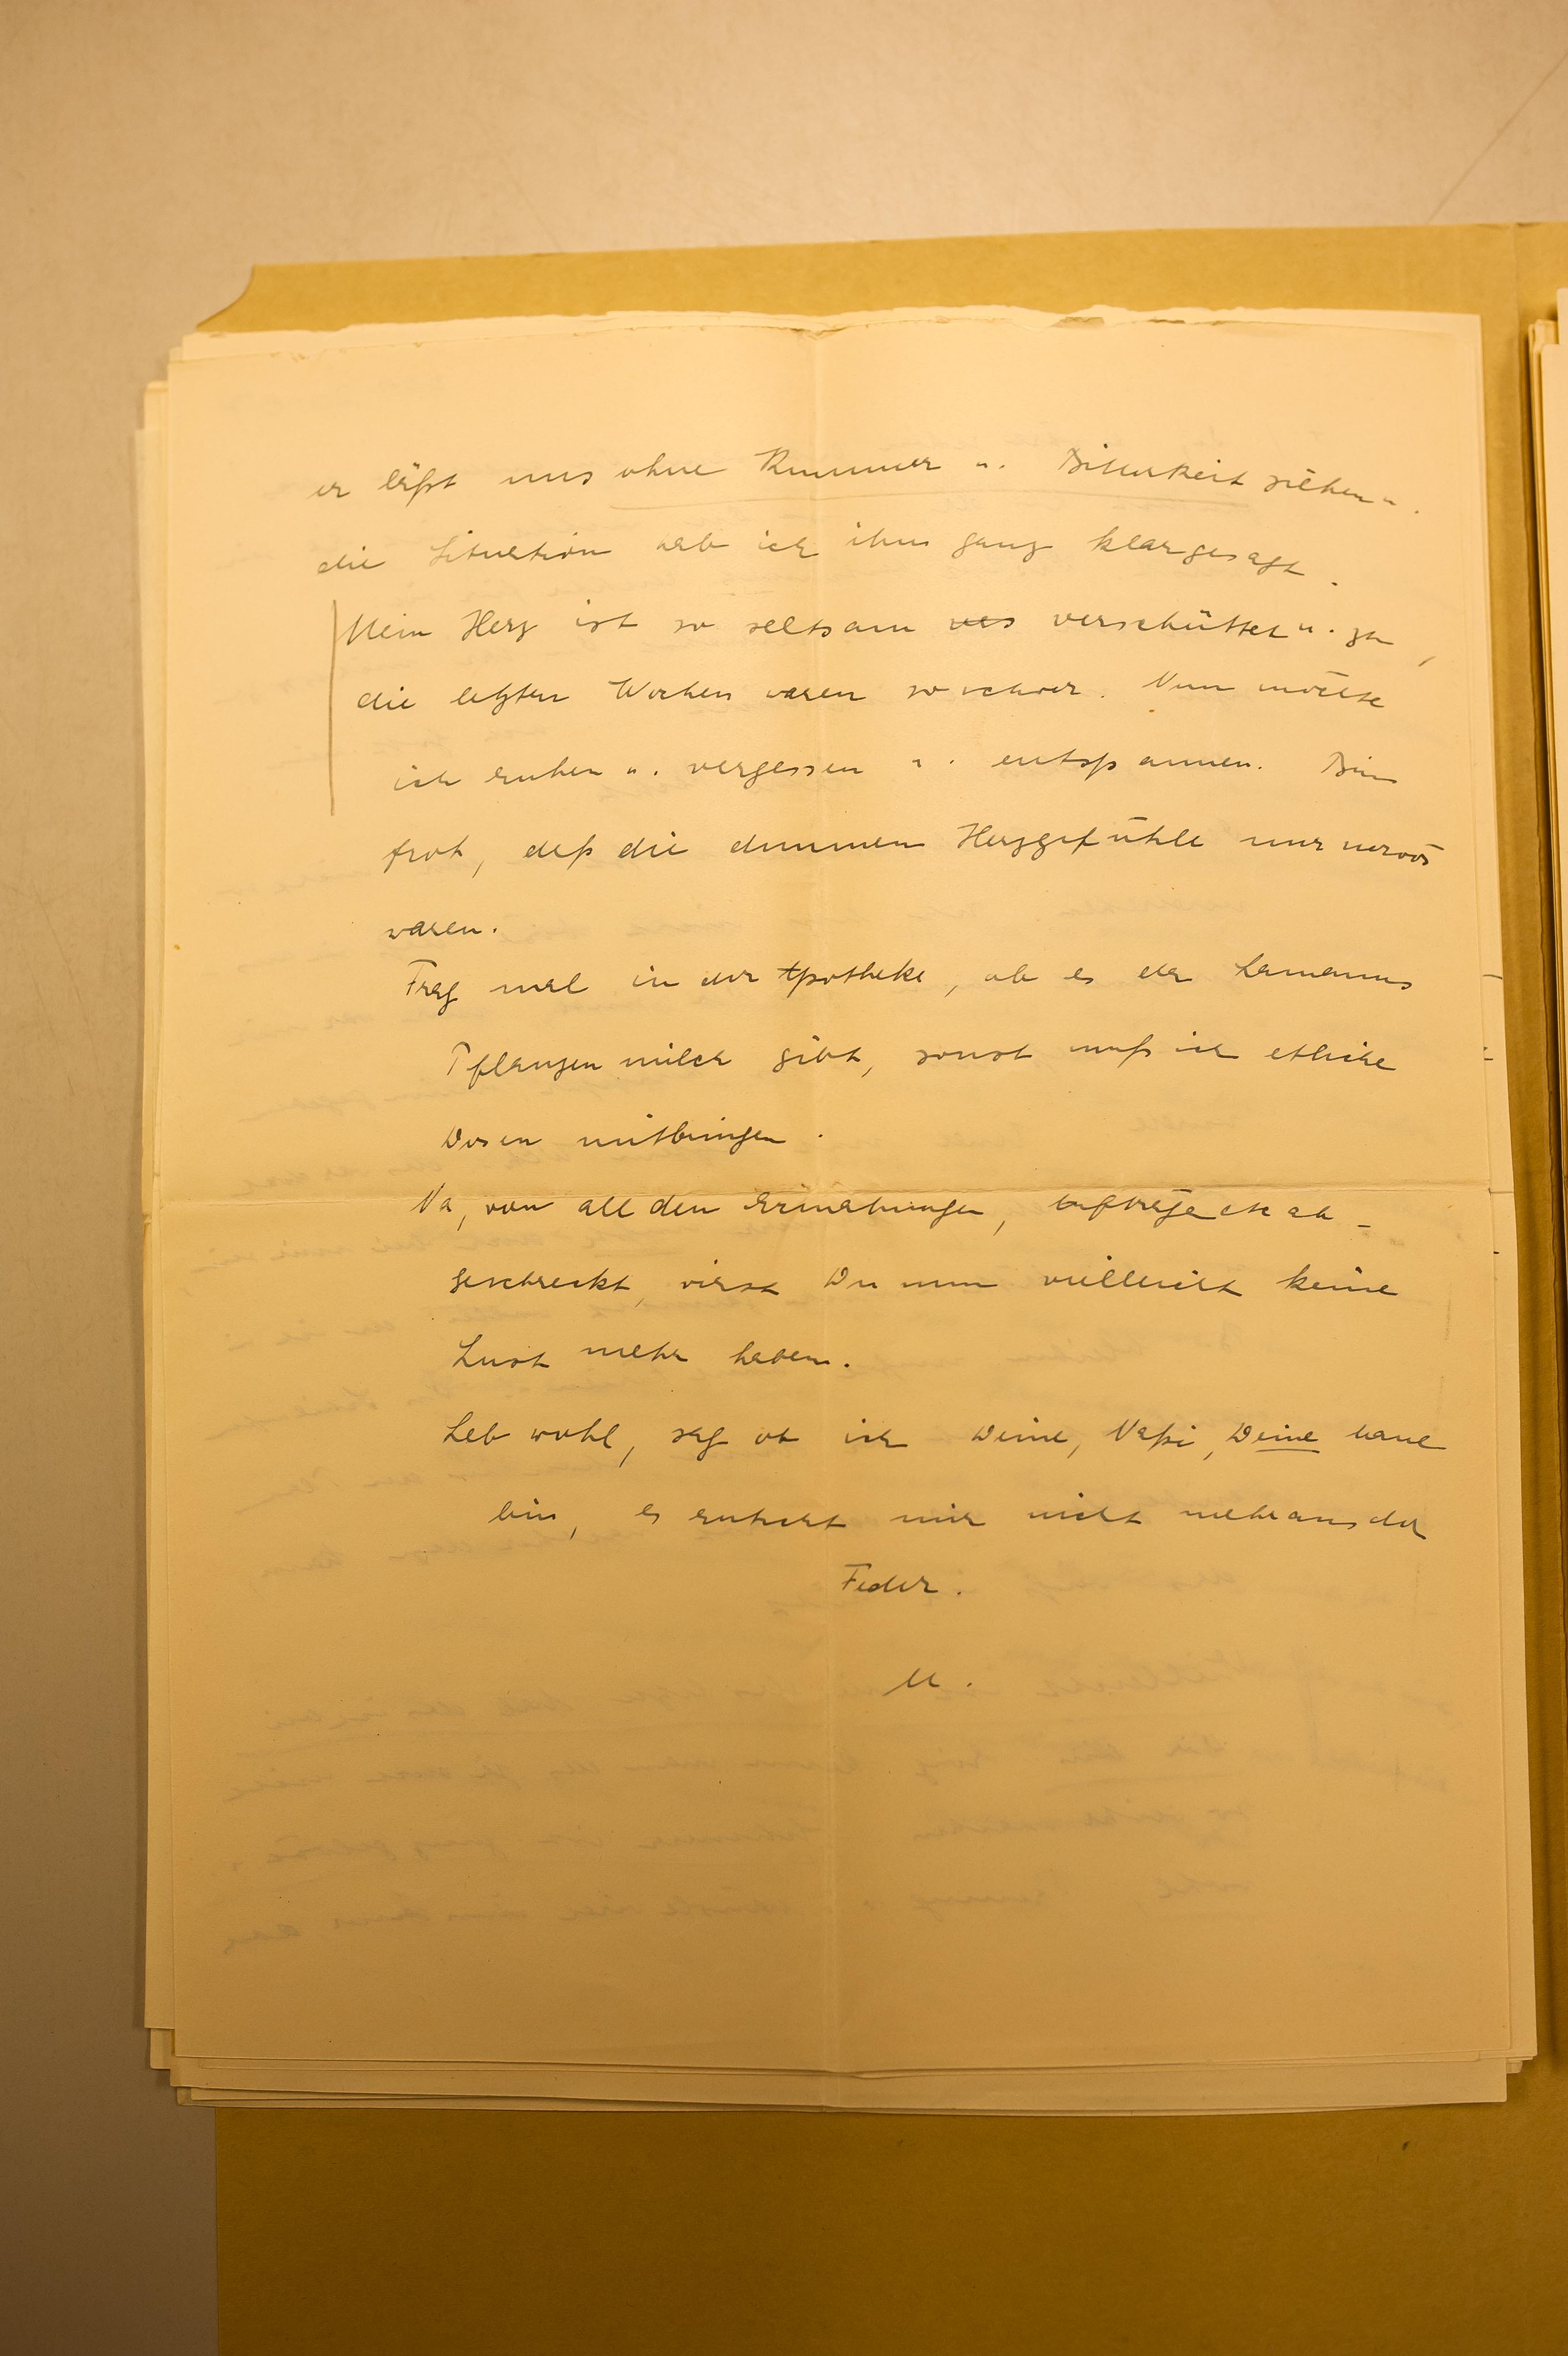 er läßt uns ohne Kummer u. Bitterkeit ziehen u.
die Situation hab ich ihm ganz klar gesagt.
Mein Herz ist so seltsam ves verschüttet u. zu,
die letzten Wochen waren so schwer. Nun möchte
ich ruhen u. vergessen u. entspannen. Bin
froh, daß die dummen Herzgefühle nur nervös
waren.
Frag mal in der Apotheke, ob es da Lamanns
Pflanzenmilch gibt, sonst muß ich etliche
Dosen mitbringen.
Na, von all den Ermahnungen, Aufträge etc ab-
geschreckt, wirst Du nun vielleicht keine
Lust mehr haben.
Leb wohl, sag ob ich Deine, Deine
bin, es rutscht mir nicht mehr aus der
Feder.
M.